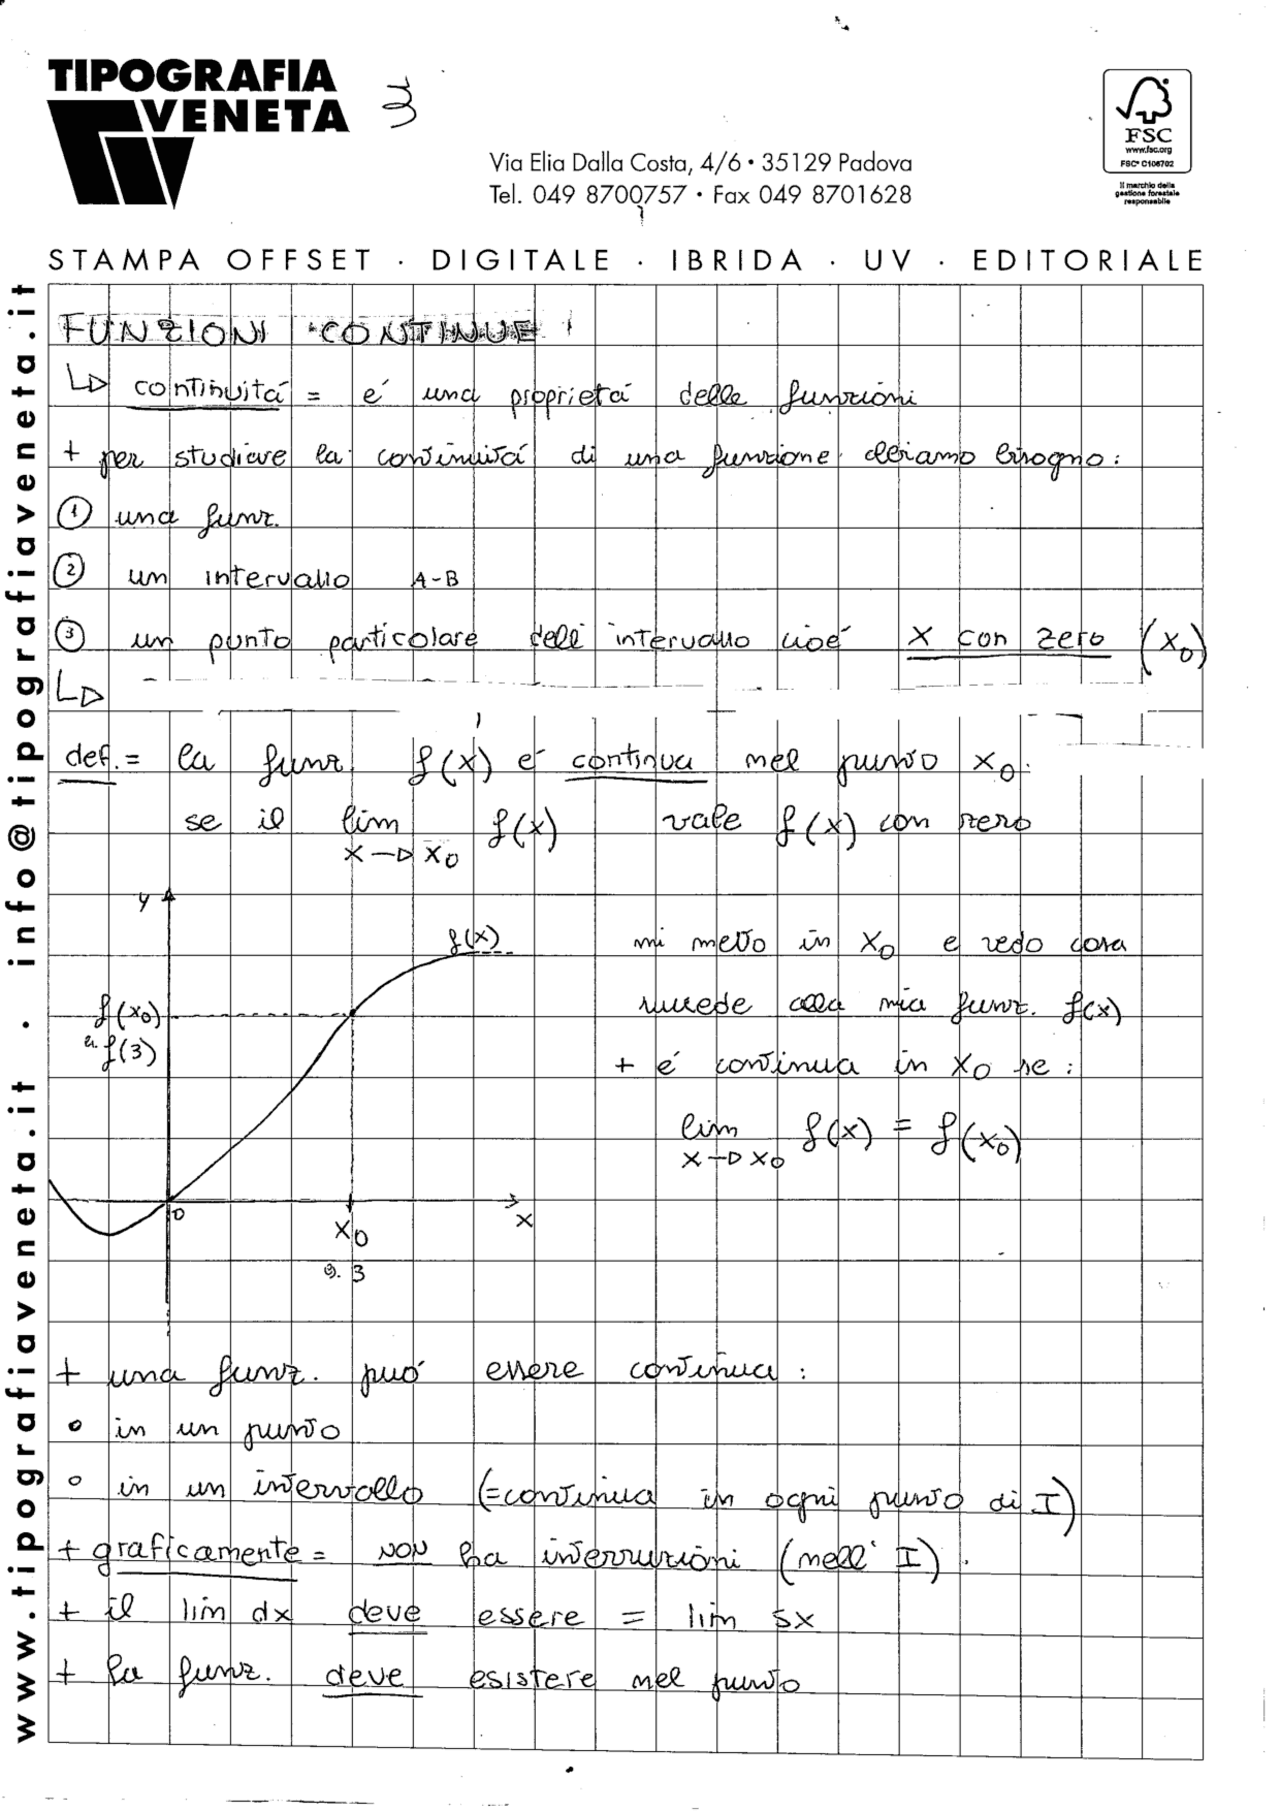 TIPOGRAFIA
VENETA
3
Via Elia Dalla Costa, 4/6 • 35129 Padova
Tel. 049 8700757 • Fax 049 8701628
FSC
www.fsc.org
FSC® C106702
Il marchio della
gestione forestale
responsabile
STAMPA OFFSET · DIGITALE · IBRIDA · UV · EDITORIALE
www.tipografiaveneta.it · info@tipografiaveneta.it
FUNZIONI CONTINUE
continuitá = é una proprietá delle funzioni
+ per studiare la continuitá di una funzione abbiamo bisogno:
① una funz.
② un intervallo A-B
③ un punto particolare dell' intervallo cioé x con zero (x₀)
def. = la funz f(x) é continua nel punto x₀:
se il lim f(x) vale f(x) con zero
x → x₀
y
f(x)
mi metto in x₀ e vedo cosa
f(x₀)
succede alla mia funz. f(x)
f(3)
+ é continua in x₀ se:
lim f(x) = f(x₀)
x → x₀
0
x
x₀
3
+ una funz. puó essere continua:
° in un punto
° in un intervallo (=continua in ogni punto di I)
+ graficamente = NON ha interruzioni (nell' I).
+ il lim dx deve essere = lim sx
+ la funz. deve esistere nel punto